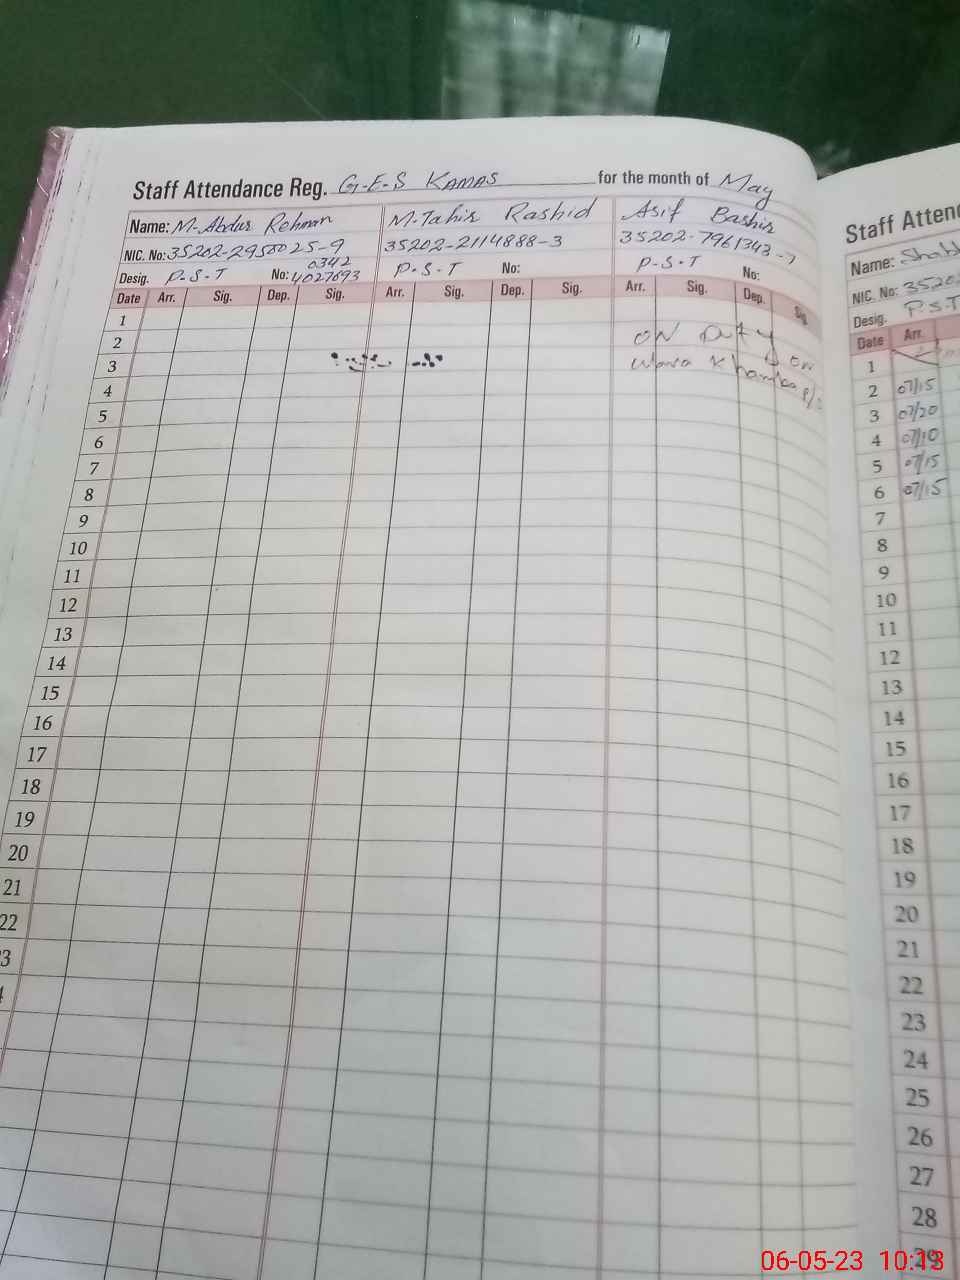 Staff Attendance Reg. G-E-S KAMAS for the month of May
Name: M-Abdur Rehman M.Tahir Rashid Asif Bashir
NIC. No: 35202-2950025-9 35202-2114888-3 35202-7961343-7
0342
Desig. P-S-T No: 4027693 P-S-T No: P-S-T No:
Date Arr. Sig. Dep. Sig. Arr. Sig. Dep. Sig. Arr. Sig. Dep. Sig.
1
2 ON Duty
3 on
4
5
6
7
8
9
10
11
12
13
14
15
16
17
18
19
20
21
22
3
4
Staff Attend
Name:
NIC. No: 3520
Desig. P.S.T
Date Arr.
1
2 07/15
3 07/20
4 07/10
5 07/15
6 07/15
7
8
9
10
11
12
13
14
15
16
17
18
19
20
21
22
23
24
25
26
27
28
29
06-05-23 10:13